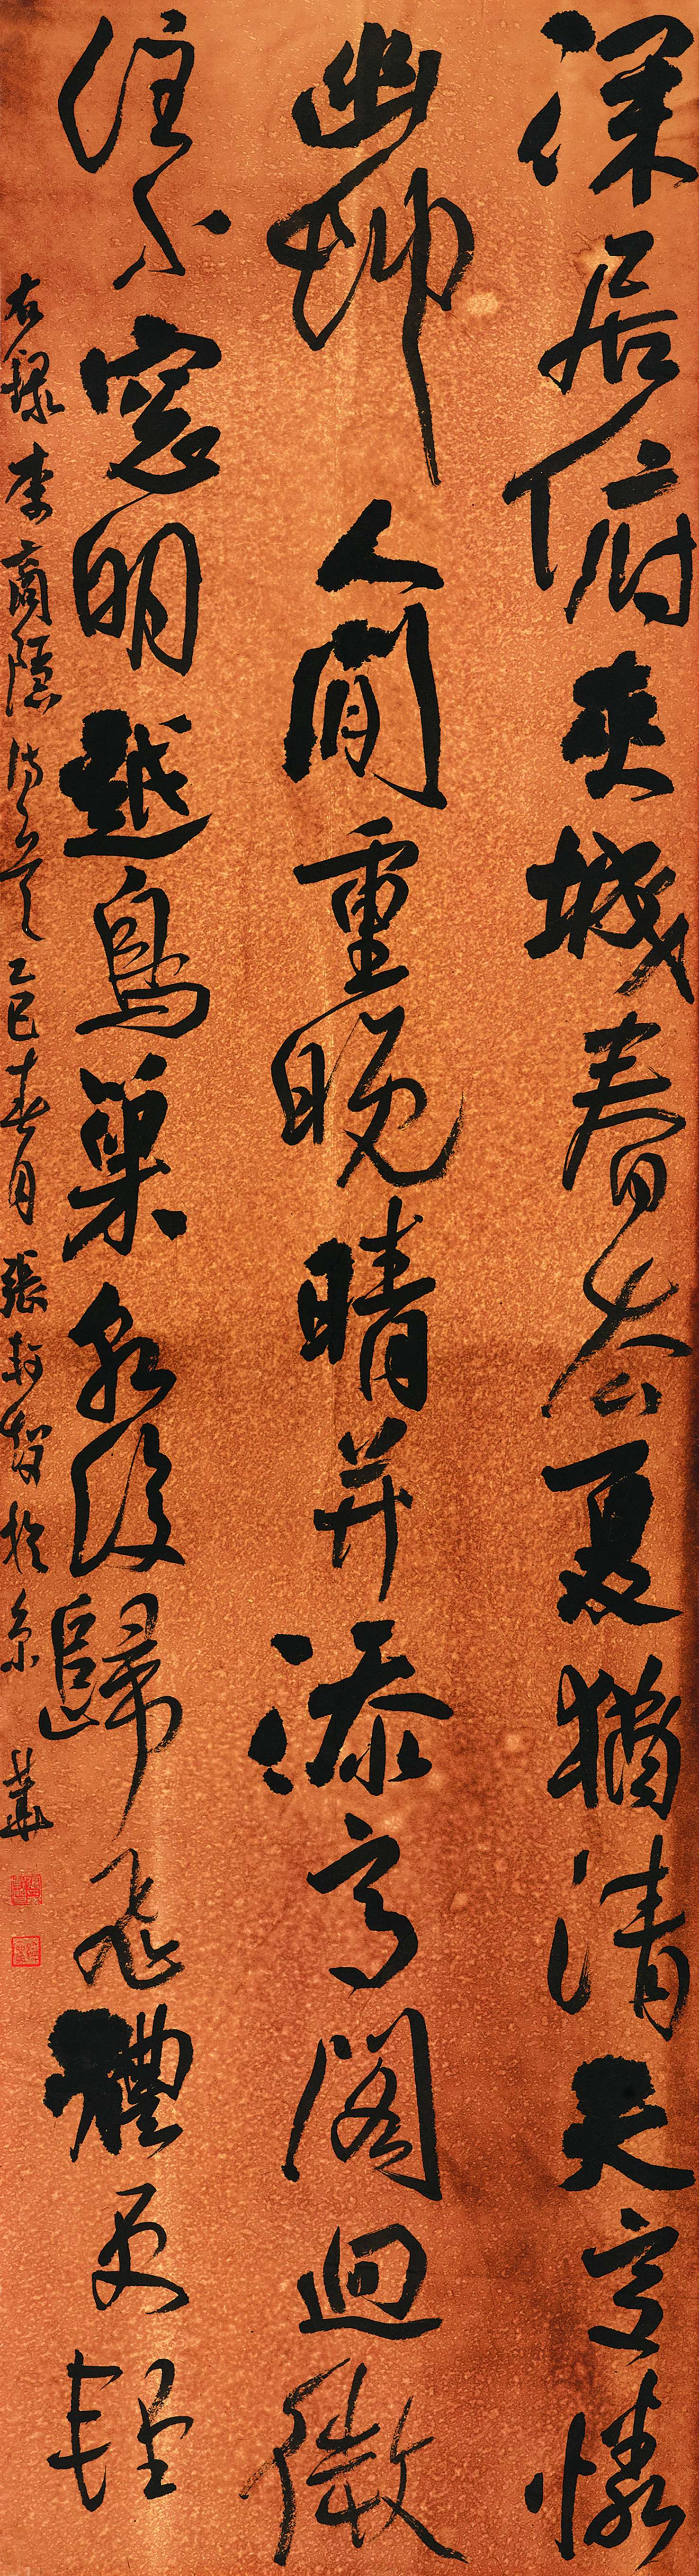 深居俯夾城春去夏猶清天意憐
幽艸人間重晚晴并添高閣迥微
注小窻明越鳥巢乾後歸飛體更輕
右錄李商隱詩一首乙巳春月張於京華